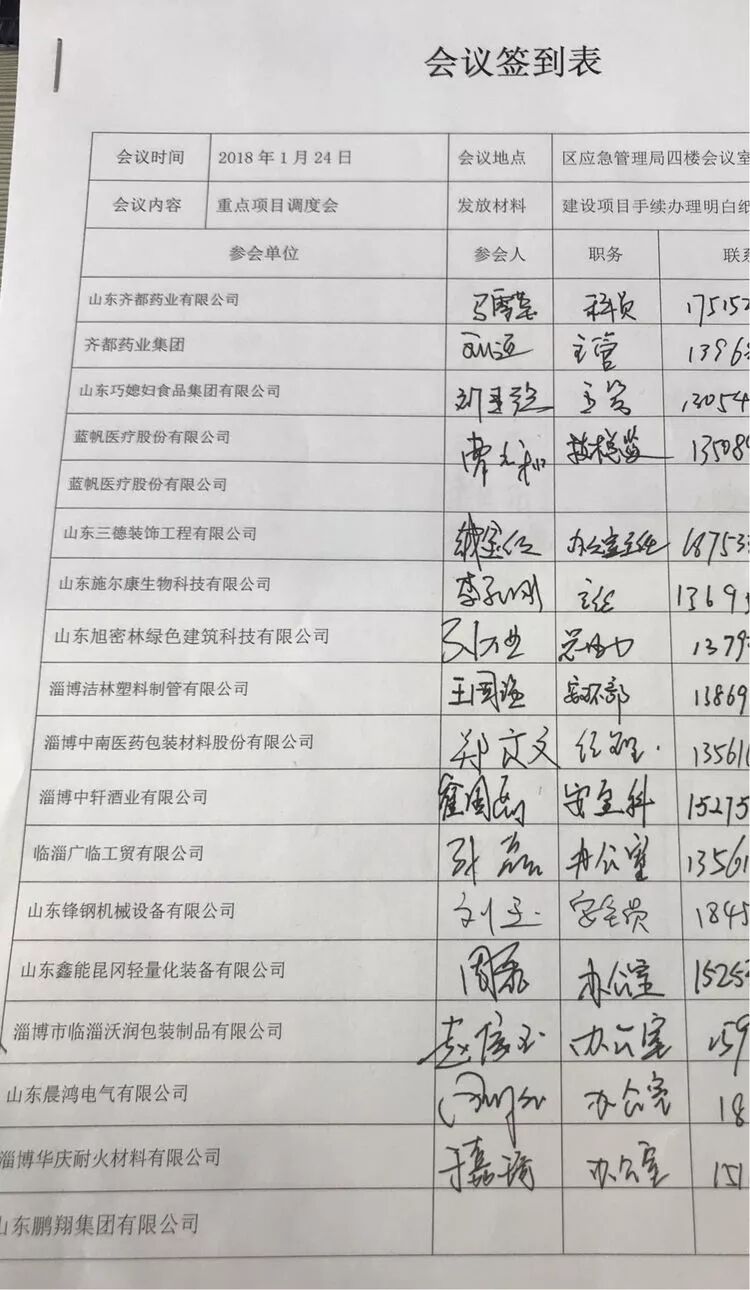 会议签到表
会议时间 2018 年 1 月 24 日 会议地点 区应急管理局四楼会议室
会议内容 重点项目调度会 发放材料 建设项目手续办理明白纸
参会单位 参会人 职务 联系
山东齐都药业有限公司 科员 175152
齐都药业集团 主管 1396
山东巧媳妇食品集团有限公司 主管 13054
蓝帆医疗股份有限公司 13508
蓝帆医疗股份有限公司
山东三德装饰工程有限公司 办公室主任 18753
山东施尔康生物科技有限公司 主任 1369
山东旭密林绿色建筑科技有限公司 1379
淄博洁林塑料制管有限公司 王国强 安环部 13869
淄博中南医药包装材料股份有限公司 郑文文 经理. 13561
淄博中轩酒业有限公司 安全科 15275
临淄广临工贸有限公司 张磊 办公室 13561
山东锋钢机械设备有限公司 刘玉 安全员 1845
山东鑫能昆冈轻量化装备有限公司 周磊 办公室 15252
淄博市临淄沃润包装制品有限公司 办公室 159
山东晨鸿电气有限公司 办公室 18
淄博华庆耐火材料有限公司 于嘉琦 办公室 151
山东鹏翔集团有限公司